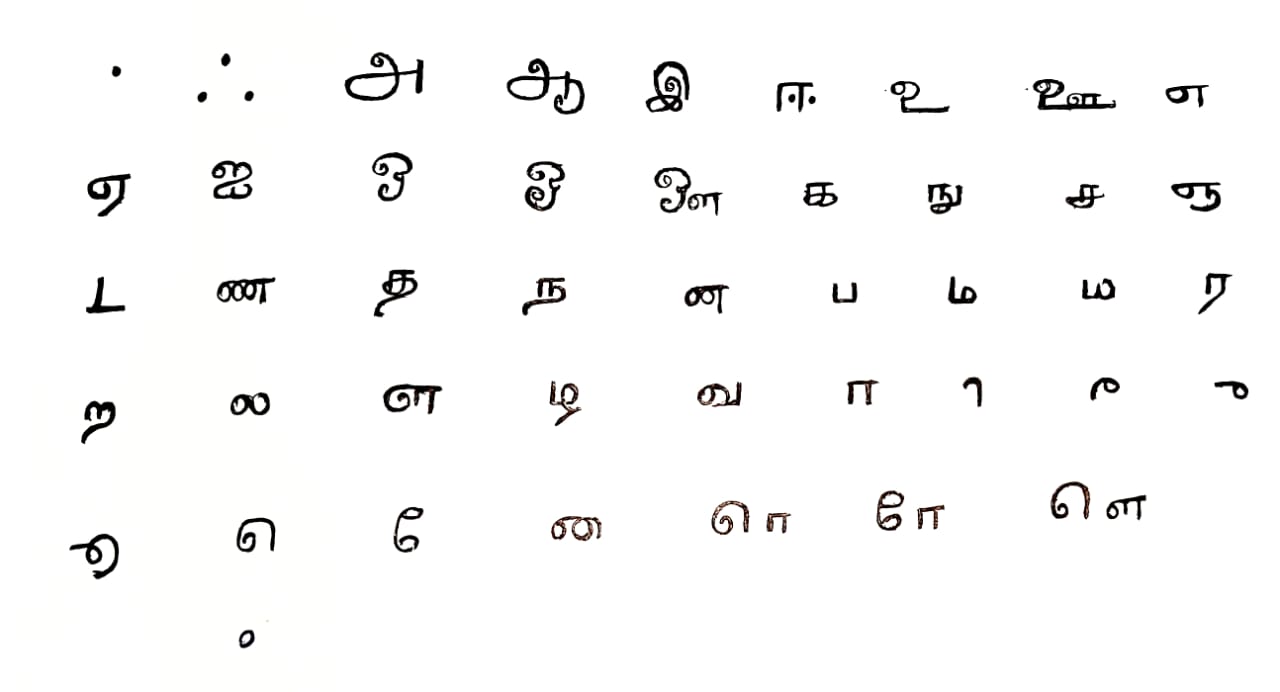 . ஃ அ ஆ இ ஈ உ ஊ எ
ஏ ஐ ஒ ஓ ஔ க ங ச ஞ
ட ண த ந ன ப ம ய ர
ற ல ள ழ வ ா ி ீ ு
ூ ெ ே ை ொ ோ ௌ
்